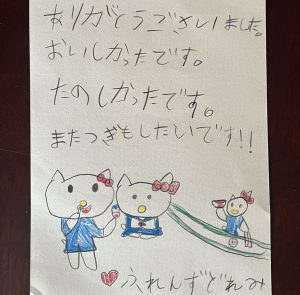 ありがとうございました。
おいしかったです。
たのしかったです。
またつぎもしたいです!!
ふれんずどれみ